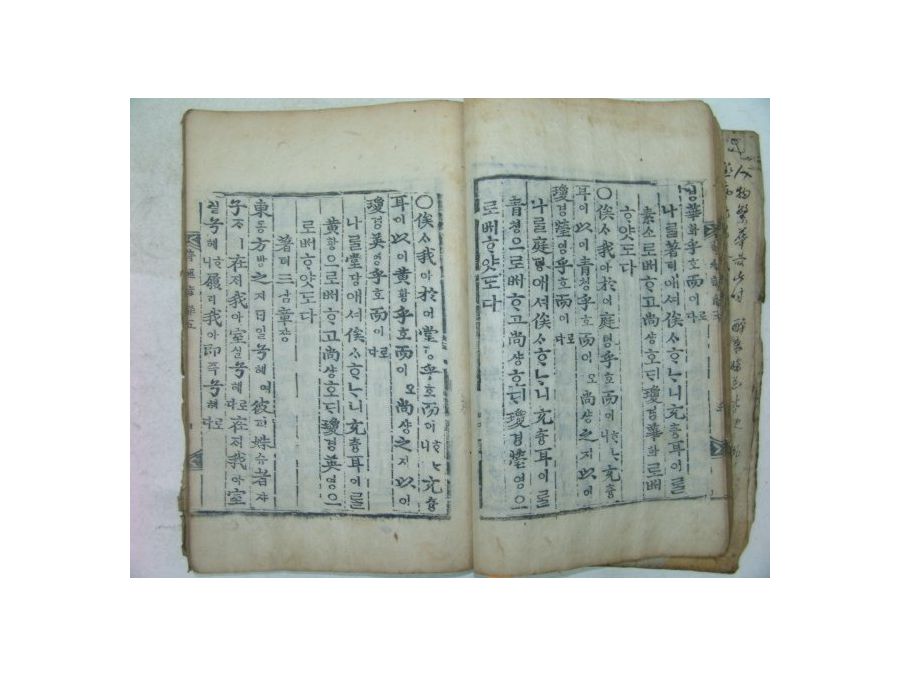 경華화乎호而이로다
나를著뎌애셔俟ᄉᆞᄒᆞᄂᆞ니充츙耳이를
素소로ᄡᅥᄒᆞ고尙샹호ᄃᆡ瓊경華화로ᄡᅥ
ᄒᆞ얏도다
○俟ᄉᆞ我아於어庭뎡乎호而이ᄒᆞᄂᆞ니充츙
耳이以이靑쳥乎호而이오尙샹之지以이
瓊경瑩영乎호而이로다
나를庭뎡애셔俟ᄉᆞᄒᆞᄂᆞ니充츙耳이를
靑쳥으로ᄡᅥᄒᆞ고尙샹호ᄃᆡ瓊경瑩영으
로ᄡᅥᄒᆞ얏도다
○俟ᄉᆞ我아於어堂당乎호而이ᄒᆞᄂᆞ니充츙
耳이以이黃황乎호而이오尙샹之지以이
瓊경英영乎호而이로다
나를堂당애셔俟ᄉᆞᄒᆞᄂᆞ니充츙耳이를
黃황으로ᄡᅥᄒᆞ고尙샹호ᄃᆡ瓊경英영으
로ᄡᅥᄒᆞ얏도다
著뎌三삼章쟝
東동方방之지日일兮혜여彼피姝슈者쟈
子ᄌᆞㅣ在ᄌᆡ我아室실兮혜로다在ᄌᆡ我아室
실兮혜ᄒᆞ니履리我아卽즉兮혜로다